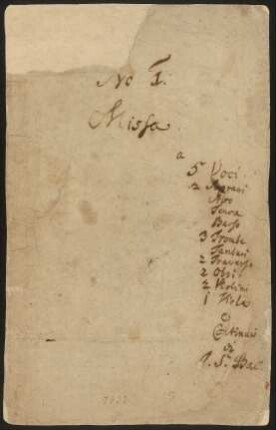 No 1.
Missa
a
5 Voci
2 Soprani
Alto
Tenore
Basso
3 Trombe
Tamburi
2 Travers
2 Obvi
2 Violini
1 Viola
e
Continuo
di
J. S. Bac